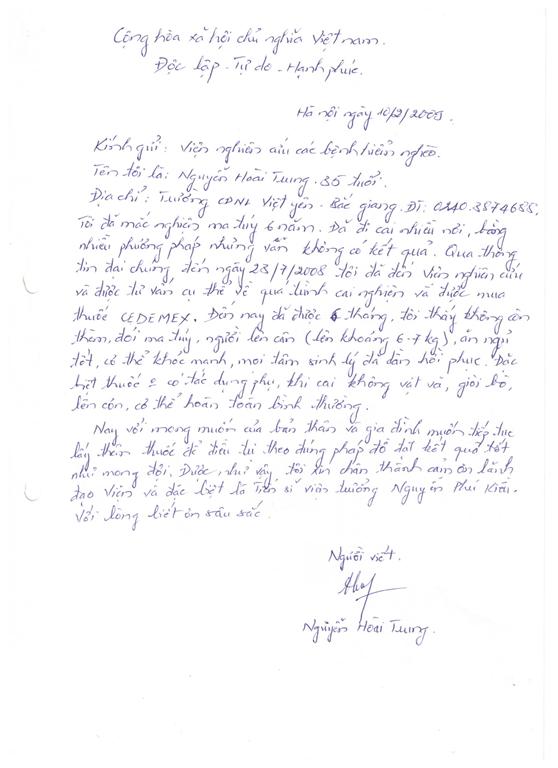 Cộng hòa xã hội chủ nghĩa Việt nam.
Độc lập - Tự do - Hạnh phúc.
Hà nội ngày 10/2/2009.
Kính gửi: Viện nghiên cứu các bệnh hiểm nghèo.
Tên tôi là: Nguyễn Hoài Trung. 35 tuổi.
Địa chỉ: Trường CĐNL Việt yên - Bắc giang. ĐT: 0240.3874688.
Tôi đã mắc nghiện ma túy 6 năm. Đã đi cai nhiều nơi, bằng
nhiều phương pháp nhưng vẫn không có kết quả. Qua thông
tin đại chúng đến ngày 28/7/2008 tôi đã đến Viện nghiên cứu
và được tư vấn cụ thể về quá trình cai nghiện và được mua
thuốc CEDEMEX. Đến nay đã được 6 tháng, tôi thấy không còn
thèm, đói ma túy, người lên cân (lên khoảng 6-7 kg), ăn ngủ
tốt, cơ thể khỏe mạnh, mọi tâm sinh lý đã dần hồi phục. Đặc
biệt thuốc có tác dụng phụ, khi cai không vật vã, giòi bò,
lên cơn, cơ thể hoàn toàn bình thường.
Nay với mong muốn của bản thân và gia đình muốn tiếp tục
lấy thêm thuốc để điều trị theo đúng pháp đồ đạt kết quả tốt
như mong đợi. Được như vậy tôi xin chân thành cảm ơn lãnh
đạo Viện và đặc biệt là Tiến sĩ viện trưởng Nguyễn Phú Kiều.
Với lòng biết ơn sâu sắc.
Người viết.
Nguyễn Hoài Trung.